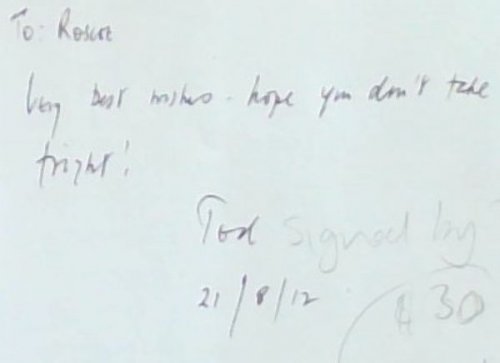 To: Roscoe
Very best wishes - hope you don't take
fright!
Tod signed by
21/8/12
30